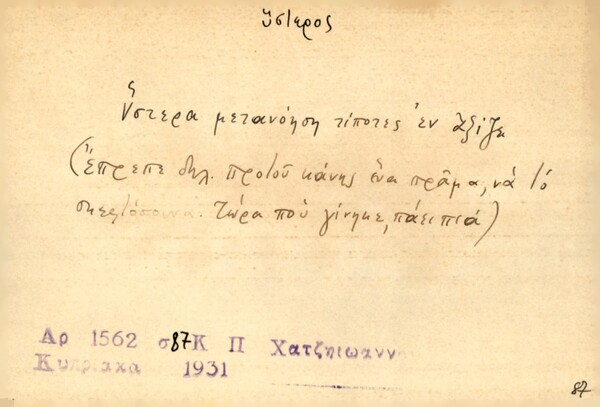 ὕστερος
Ὕστερα μετανόηση τίποτες ἐν ἀξίζει
(Ἔπρεπε δηλ. προτοῦ κάνης ἕνα πρᾶμα, νὰ τό
Τώρα ποὺ γίνηκε, πάει πιά)
Αρ 1562 σ 87 Κ Π Χατζηιωανν
Κυπριακα 1931
87